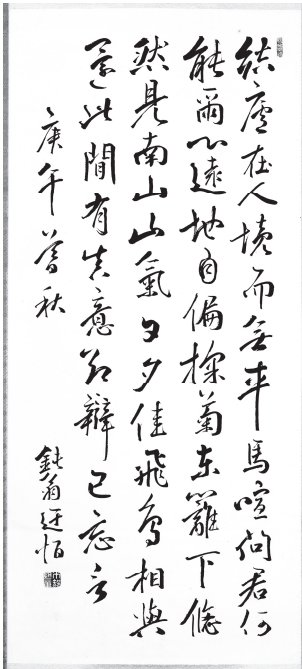 結廬在人境而無車馬喧問君何
能爾心遠地自偏採菊東籬下悠
然見南山山氣日夕佳飛鳥相與
還此間有真意欲辯已忘言
庚午暮秋
鈍翁